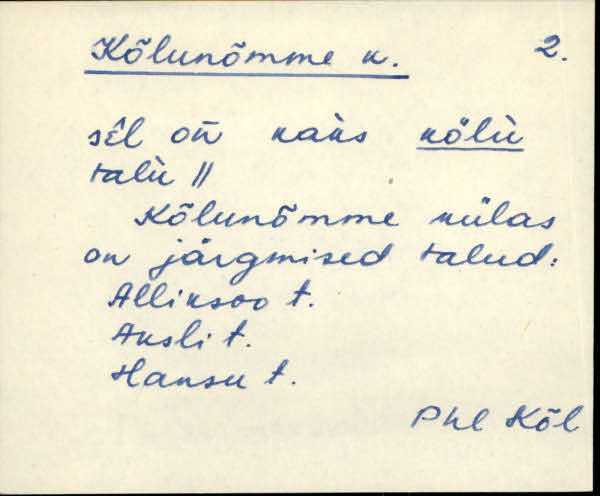 Kõlunõmme k. 2.
sēl on̄ kaks kõlu̇
talu̇ ||
Kõlunõmme külas
on järgmised talud:
Alliksoo t.
Aksli t.
Hansu t.
Phl Kõl